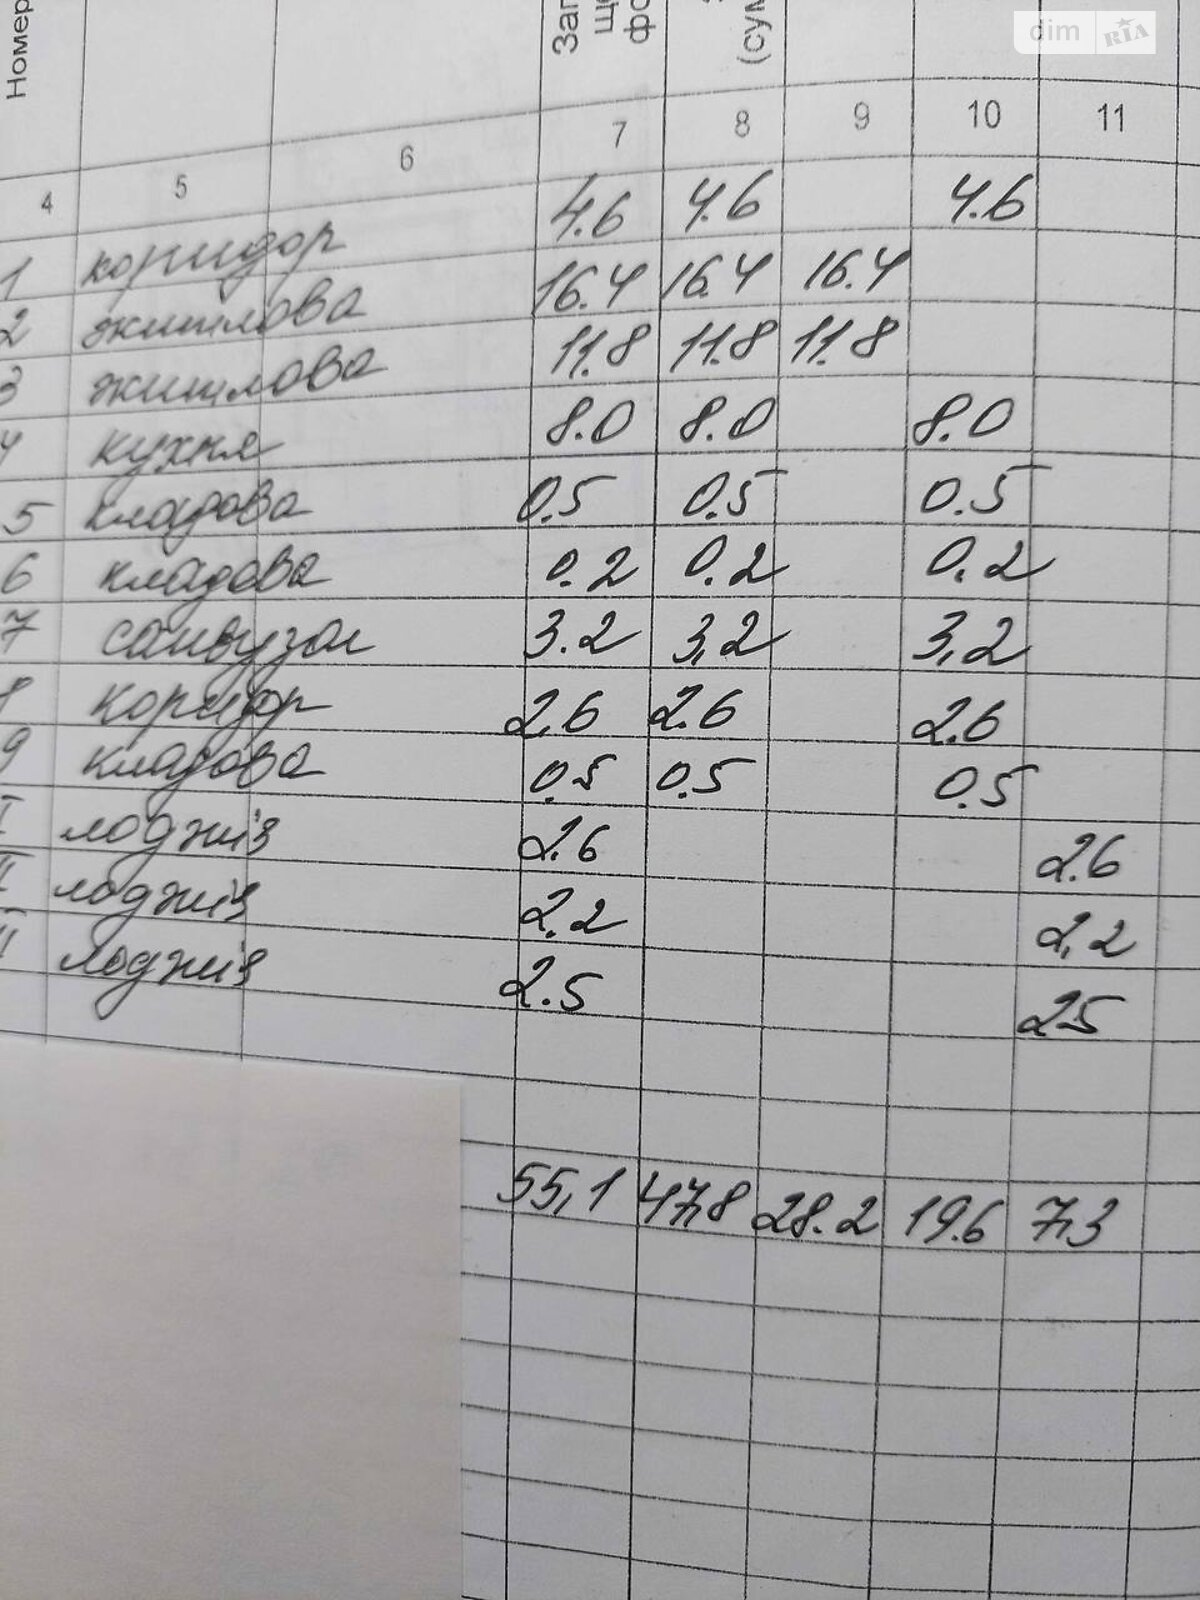 dim RIA
Номер Заг що фо (сум
4 5 6 7 8 9 10 11
1 коридор 4.6 4.6 4.6
2 житлова 16.4 16.4 16.4
3 житлова 11.8 11.8 11.8
4 кухня 8.0 8.0 8.0
5 кладова 0.5 0.5 0.5
6 кладова 0.2 0.2 0.2
7 санвузол 3.2 3,2 3,2
8 коридор 2.6 2.6 2.6
9 кладова 0.5 0.5 0.5
I лоджія 2.6 2.6
II лоджія 2.2 2,2
II лоджія 2.5 2.5
55,1 47,8 28.2 19.6 7,3